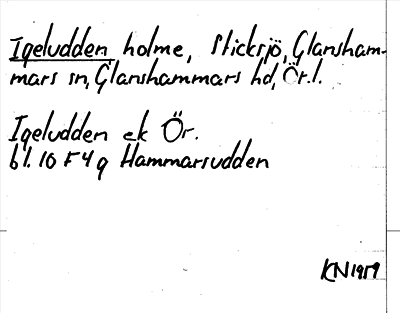 Igeludden holme, Slicksjö, Glansham-
mars sn, Glanshammars hd, Ör. l.
Igeludden ek Ör.
bl. 10 F 4 g Hammarsudden
KN 1959